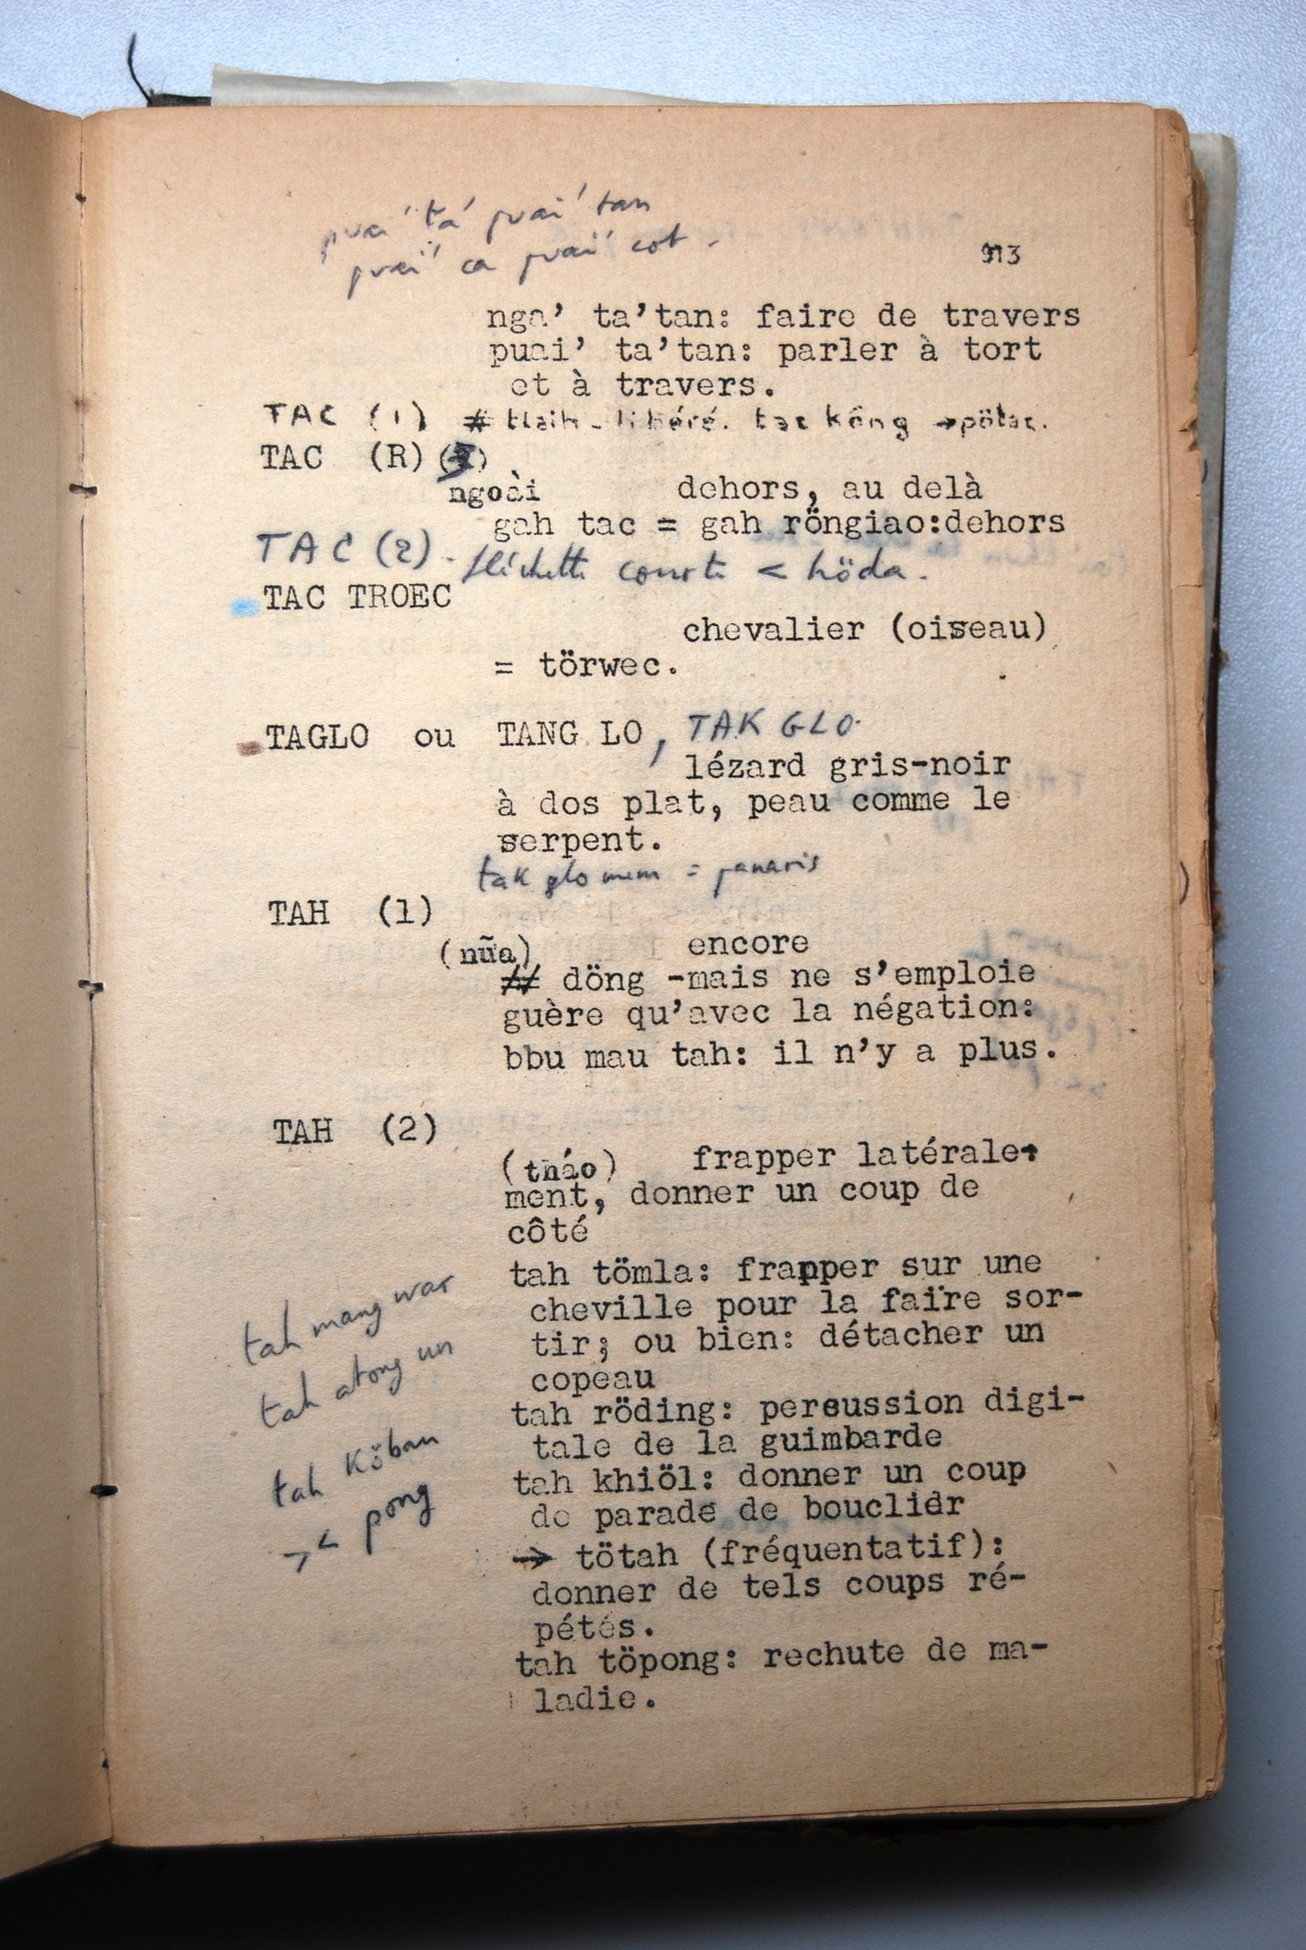 puai' ta' puai' tan
puai' ca puai' cot.
913
nga' ta'tan: faire de travers
puai' ta'tan: parler à tort
et à travers.
TAC (1) # tlaih - libéré. tac kông → pötac.
TAC (R)
ngoài dehors, au delà
gah tac = gah röngiao:dehors
TAC (2) - fléchette courte < höda.
TAC TROEC
chevalier (oiseau)
= törwec.
TAGLO ou TANG LO, TAK GLO
lézard gris-noir
à dos plat, peau comme le
serpent.
tak glo mem = panaris
TAH (1)
(nũa) encore
# döng -mais ne s'emploie
guère qu'avec la négation:
bbu mau tah: il n'y a plus.
TAH (2)
(tháo) frapper latérale-
ment, donner un coup de
côté
tah tömla: frapper sur une
cheville pour la faire sor-
tir; ou bien: détacher un
copeau
tah röding: percussion digi-
tale de la guimbarde
tah khiöl: donner un coup
de parade de bouclier
→ tötah (fréquentatif):
donner de tels coups ré-
pétés.
tah töpong: rechute de ma-
ladie.
tah mang war
tah atong un
tah köban
>< pong